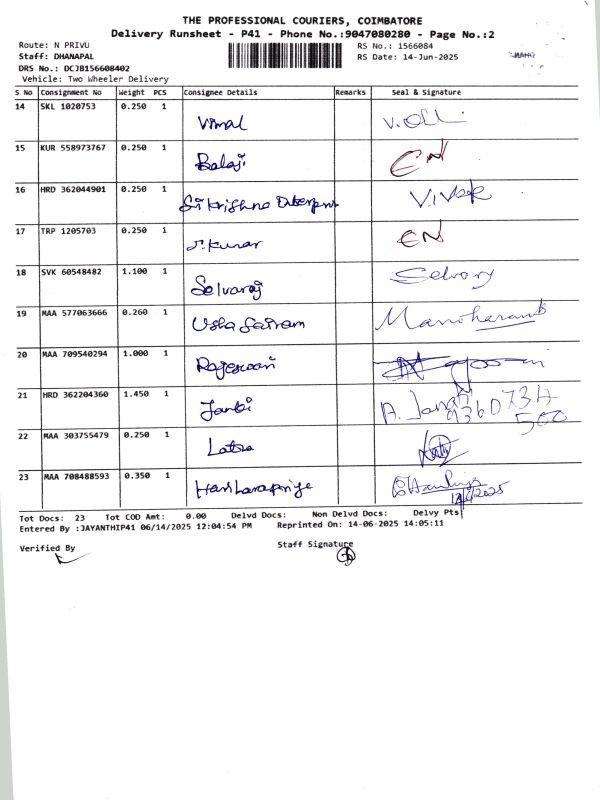 THE PROFESSIONAL COURIERS, COIMBATORE
Delivery Runsheet - P41 - Phone No.:9047080280 - Page No.:2
Route: N PRIVU RS No.: 1566084
Staff: DHANAPAL RS Date: 14-Jun-2025
DRS No.: DCJB156608402
Vehicle: Two Wheeler Delivery
S No Consignment No Weight PCS Consignee Details Remarks Seal & Signature
14 SKL 1020753 0.250 1
Vimal
15 KUR 558973767 0.250 1
Balaji EN
16 HRD 362044901 0.250 1
Sri Krishna
17 TRP 1205703 0.250 1
r. kumar EN
18 SVK 60548482 1.100 1
Selvaraj
19 MAA 577063666 0.260 1
Usha Sairam Manoharan
20 MAA 709540294 1.000 1
21 HRD 362204360 1.450 1
22 MAA 303755479 0.250 1
Latha
23 MAA 708488593 0.350 1
Tot Docs: 23 Tot COD Amt: 0.00 Delvd Docs: Non Delvd Docs: Delvy Pts
Entered By :JAYANTHIP41 06/14/2025 12:04:54 PM Reprinted On: 14-06-2025 14:05:11
Verified By Staff Signature